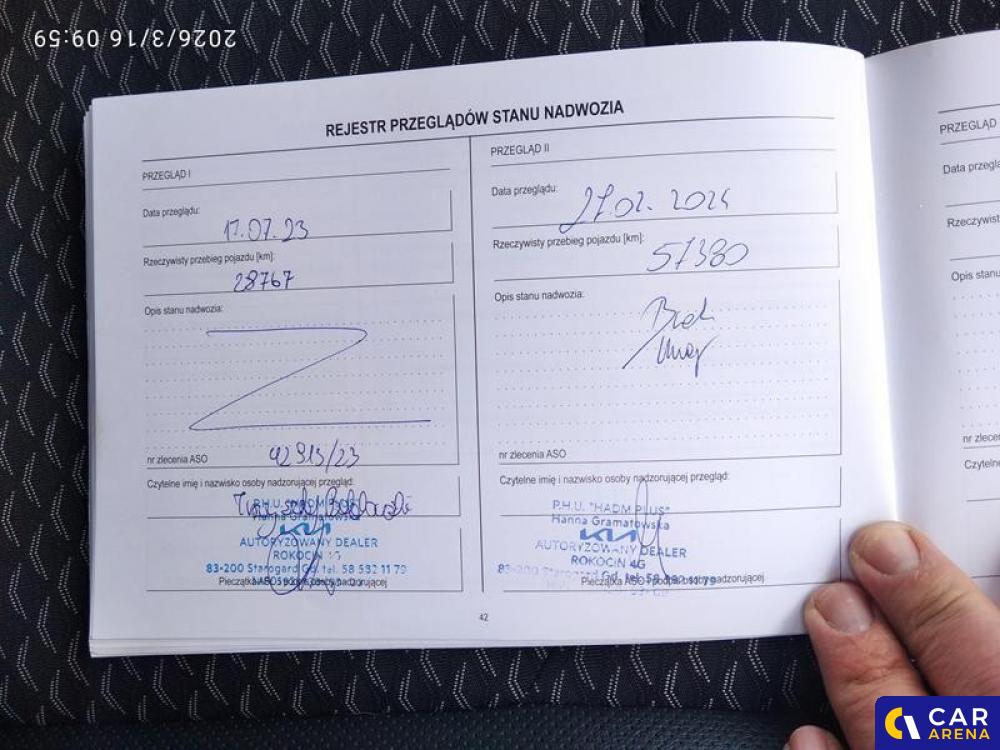 2026/3/16 09:59
REJESTR PRZEGLĄDÓW STANU NADWOZIA
PRZEGLĄD I
Data przeglądu:
17.07.23
Rzeczywisty przebieg pojazdu [km]:
28767
Opis stanu nadwozia:
nr zlecenia ASO
Czytelne imię i nazwisko osoby nadzorującej przegląd:
P.H.U. "HADM PLUS"
Hanna Gramatowska
KIA
AUTORYZOWANY DEALER
ROKOCIN 4G
83-200 Starogard Gd. tel. 58 592 11 79
Pieczątka ASO i podpis osoby nadzorującej
PRZEGLĄD II
Data przeglądu:
27.02.2024
Rzeczywisty przebieg pojazdu [km]:
57380
Opis stanu nadwozia:
Brak
nr zlecenia ASO
Czytelne imię i nazwisko osoby nadzorującej przegląd:
P.H.U. "HADM PLUS"
Hanna Gramatowska
KIA
AUTORYZOWANY DEALER
ROKOCIN 4G
83-200 Starogard Gd. tel. 58 592 11 79
Pieczątka ASO i podpis osoby nadzorującej
42
PRZEGLĄD
Data przeglą
Rzeczywisty
Opis stanu
nr zlecen
Czytelne
CAR
ARENA